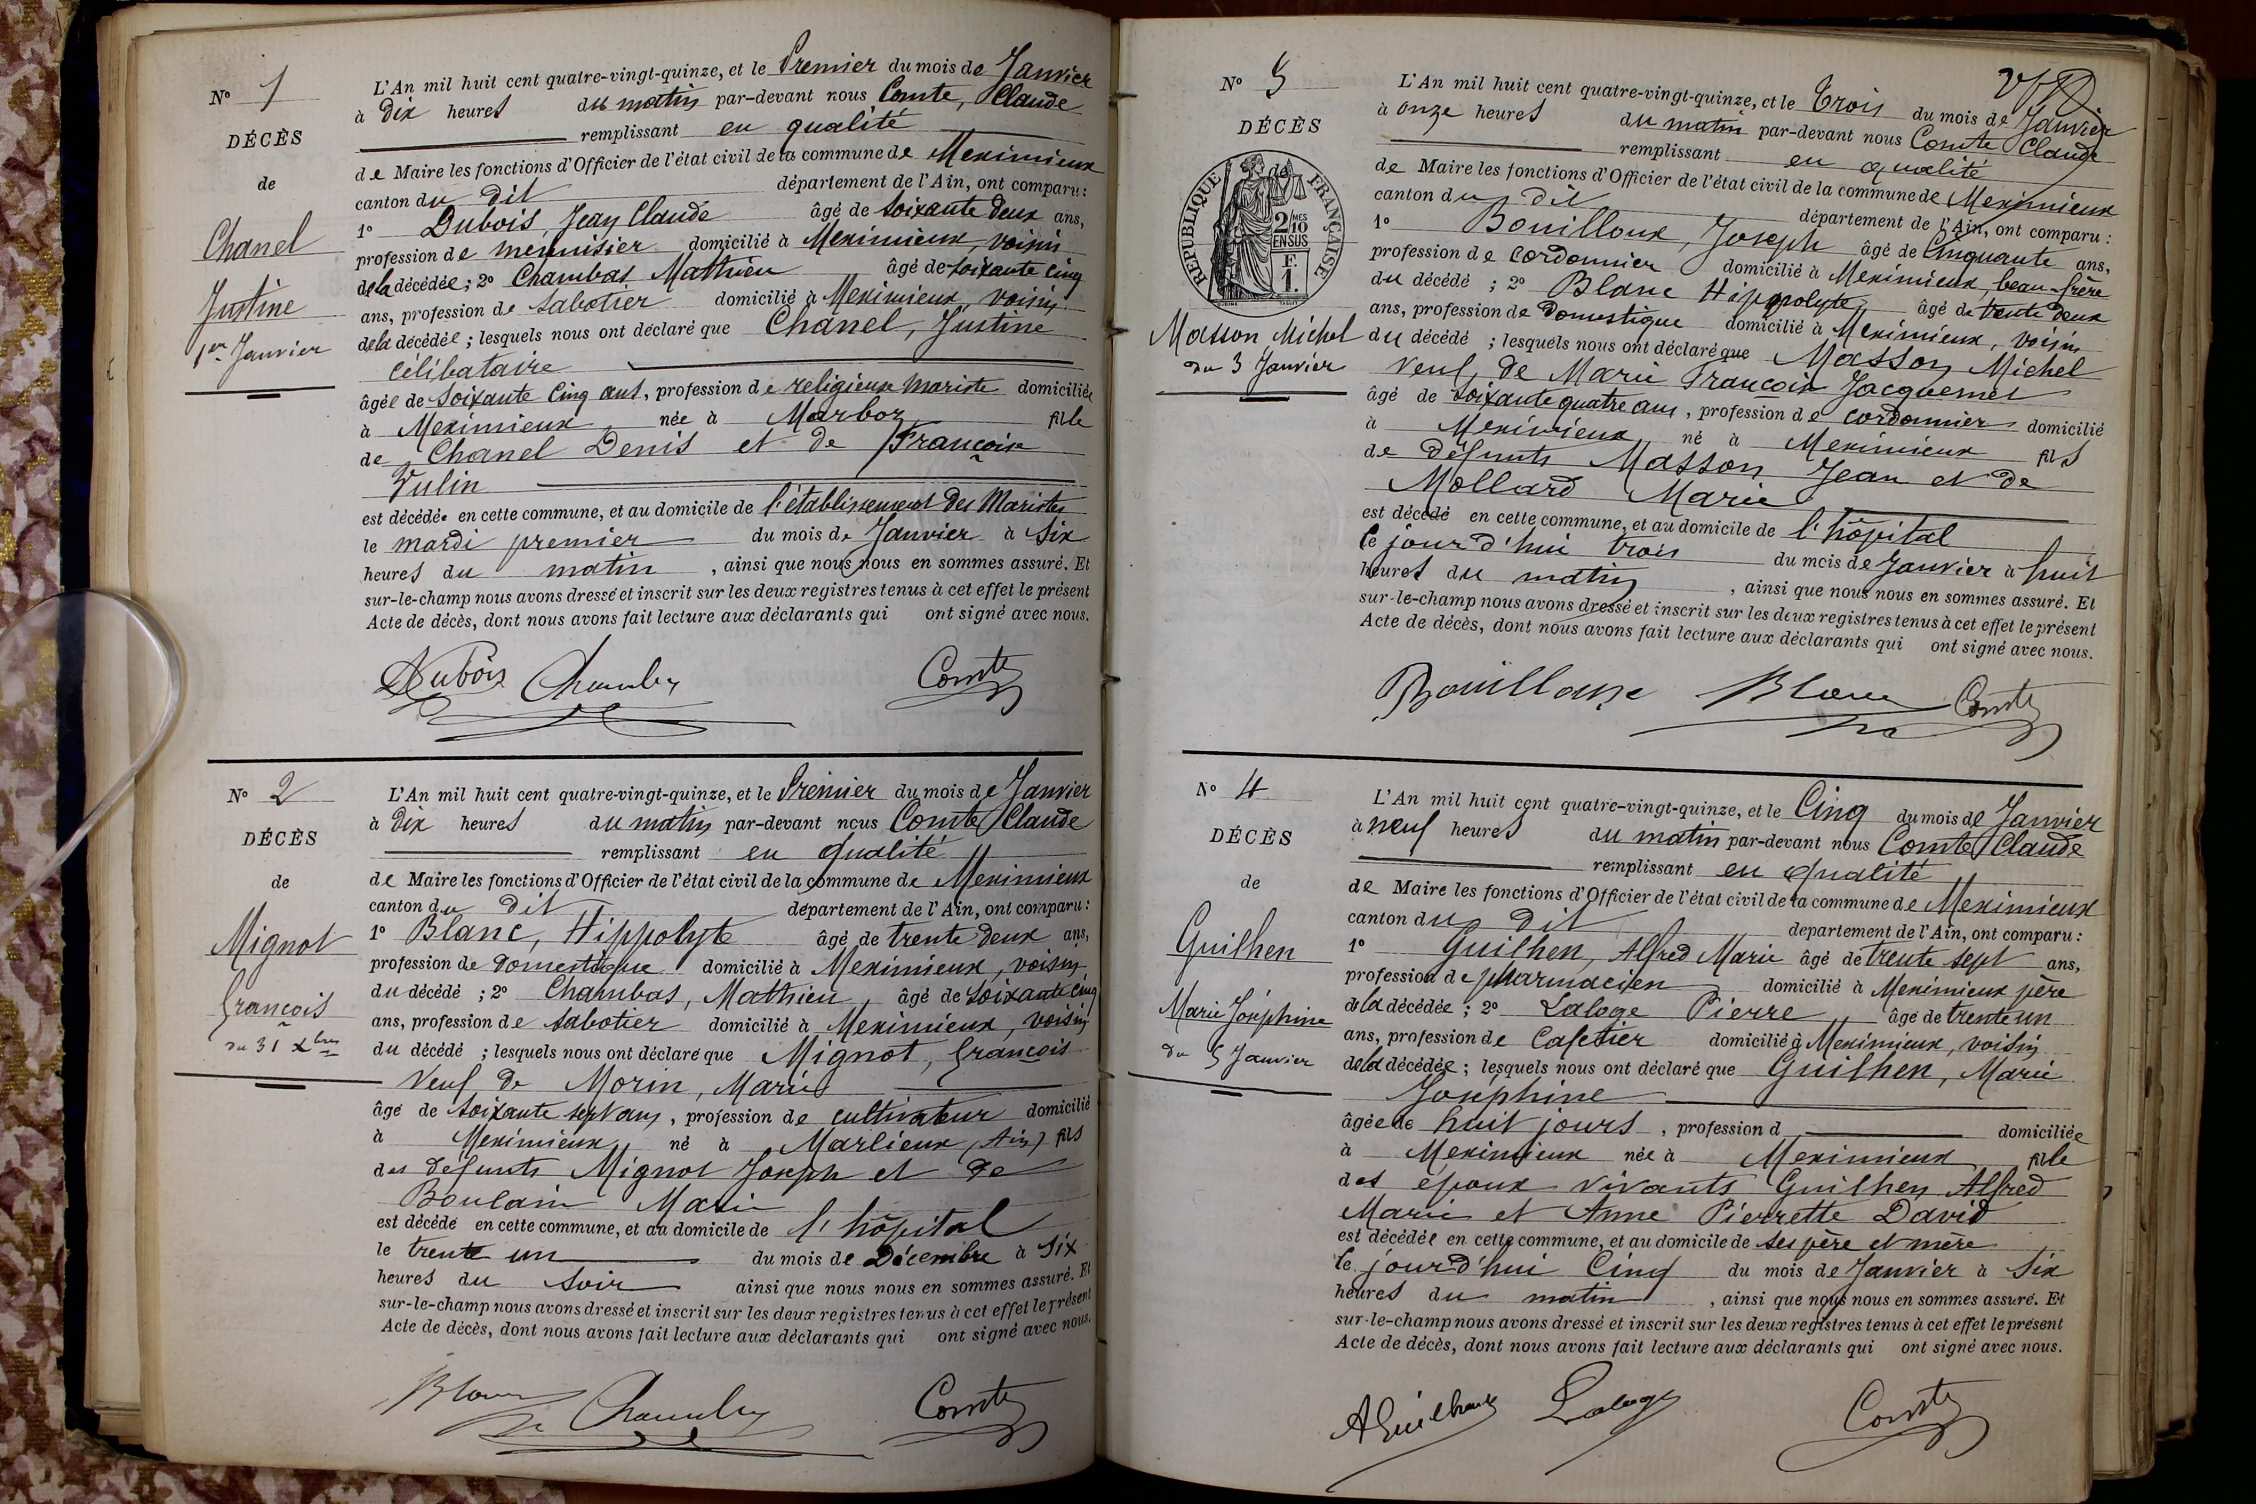 N° 1
DÉCÈS
de
Chanel
Justine
1er Janvier
L'An mil huit cent quatre-vingt-quinze, et le Premier du mois de Janvier
à Dix heures du matin par-devant nous Comte, Claude
remplissant en qualité
de Maire les fonctions d'Officier de l'état civil de la commune de Meximieux
canton du dit département de l'Ain, ont comparu :
1° Dubois, Jean Claude âgé de Soixante Deux ans,
profession de menuisier domicilié à Meximieux, voisin
de la décédée ; 2° Chambas Mathieu âgé de soixante cinq
ans, profession de Sabotier domicilié à Meximieux, voisin
de la décédée ; lesquels nous ont déclaré que Chanel, Justine
célibataire
âgée de Soixante Cinq ans, profession de religieuse Mariste domiciliée
à Meximieux née à Marboz fille
de Chanel Denis et de Françoise
Vulin
est décédée en cette commune, et au domicile de l'établissement des Maristes
le mardi premier du mois de Janvier à Six
heures du matin, ainsi que nous nous en sommes assuré. Et
sur-le-champ nous avons dressé et inscrit sur les deux registres tenus à cet effet le présent
Acte de décès, dont nous avons fait lecture aux déclarants qui ont signé avec nous.
Dubois Chambas Comte
N° 2
DÉCÈS
de
Mignot
François
du 31 Xbre
L'An mil huit cent quatre-vingt-quinze, et le Premier du mois de Janvier
à Dix heures du matin par-devant nous Comte Claude
remplissant en qualité
de Maire les fonctions d'Officier de l'état civil de la commune de Meximieux
canton du dit département de l'Ain, ont comparu :
1° Blanc, Hippolyte âgé de trente Deux ans,
profession de Domestique domicilié à Meximieux, voisin
du décédé ; 2° Chambas, Mathieu, âgé de Soixante cinq
ans, profession de Sabotier domicilié à Meximieux, voisin
du décédé ; lesquels nous ont déclaré que Mignot, François
Veuf de Morin, Marie
âgé de Soixante sept ans, profession de cultivateur domicilié
à Meximieux né à Marlieux (Ain) fils
des défunts Mignot Joseph et de
Boulain Marie
est décédé en cette commune, et au domicile de l'hôpital
le trente un du mois de Décembre à Six
heures du soir ainsi que nous nous en sommes assuré. Et
sur-le-champ nous avons dressé et inscrit sur les deux registres tenus à cet effet le présent
Acte de décès, dont nous avons fait lecture aux déclarants qui ont signé avec nous.
Blanc Chambas Comte
N° 3
DÉCÈS
RÉPUBLIQUE FRANÇAISE
2/10 MES
EN SUS
F.
1.
Masson Michel
du 3 Janvier
L'An mil huit cent quatre-vingt-quinze, et le Trois du mois de Janvier
à onze heures du matin par-devant nous Comte Claude
remplissant en qualité
de Maire les fonctions d'Officier de l'état civil de la commune de Meximieux
canton du dit département de l'Ain, ont comparu :
1° Bouilloux, Joseph âgé de Cinquante ans,
profession de cordonnier domicilié à Meximieux, beau-frère
du décédé ; 2° Blanc Hippolyte, âgé de trente deux
ans, profession de Domestique domicilié à Meximieux, voisin
du décédé ; lesquels nous ont déclaré que Masson Michel
Veuf de Marie Françoise Jacquemet
âgé de Soixante quatre ans, profession de cordonnier domicilié
à Meximieux né à Meximieux fils
de défunts Masson Jean et de
Mollard Marie
est décédé en cette commune, et au domicile de l'hôpital
le jour d'hui trois du mois de Janvier à huit
heures du matin, ainsi que nous nous en sommes assuré. Et
sur-le-champ nous avons dressé et inscrit sur les deux registres tenus à cet effet le présent
Acte de décès, dont nous avons fait lecture aux déclarants qui ont signé avec nous.
Bouilloux Blanc Comte
N° 4
DÉCÈS
de
Guilhen
Marie Joséphine
du 5 Janvier
L'An mil huit cent quatre-vingt-quinze, et le Cinq du mois de Janvier
à neuf heures du matin par-devant nous Comte Claude
remplissant en qualité
de Maire les fonctions d'Officier de l'état civil de la commune de Meximieux
canton du dit département de l'Ain, ont comparu :
1° Guilhen, Alfred Marie âgé de trente sept ans,
profession de pharmacien domicilié à Meximieux père
de la décédée ; 2° Laloge Pierre, âgé de trente un
ans, profession de Cafetier domicilié à Meximieux, voisin
de la décédée ; lesquels nous ont déclaré que Guilhen, Marie
Joséphine
âgée de huit jours, profession d domiciliée
à Meximieux née à Meximieux fille
des époux vivants Guilhen Alfred
Marie et Anne Pierrette David
est décédée en cette commune, et au domicile de ses père et mère
le jour d'hui Cinq du mois de Janvier à Six
heures du matin, ainsi que nous nous en sommes assuré. Et
sur-le-champ nous avons dressé et inscrit sur les deux registres tenus à cet effet le présent
Acte de décès, dont nous avons fait lecture aux déclarants qui ont signé avec nous.
AGuilhen Laloge Comte